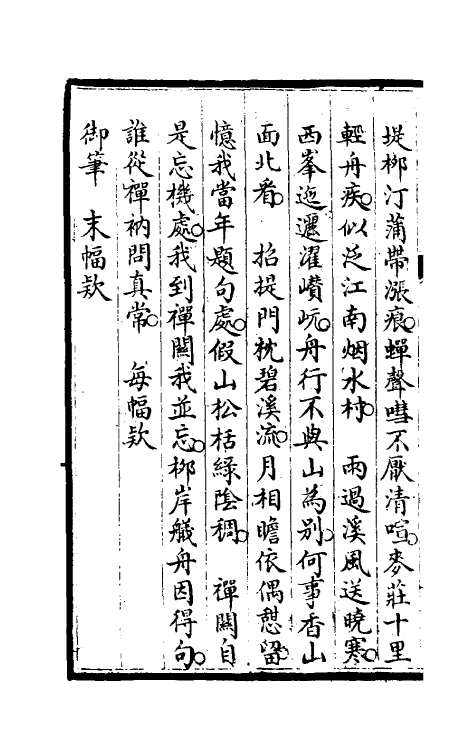 堤栁汀蒲帶漲痕蟬聲嘒不厭清喧麥莊十里
輕舟疾似泛江南烟水村　雨過溪風送曉寒
西峯迤邐濯巑岏舟行不與山為别何事香山
面北看　招提門枕碧溪流月相瞻依偶憇留
憶我當年題句處假山松栝緑陰稠　禪關自
是忘機處我到禪關我並忘栁岸艤舟因得句
誰從禪衲問真常　每幅欵
御筆　末幅欵